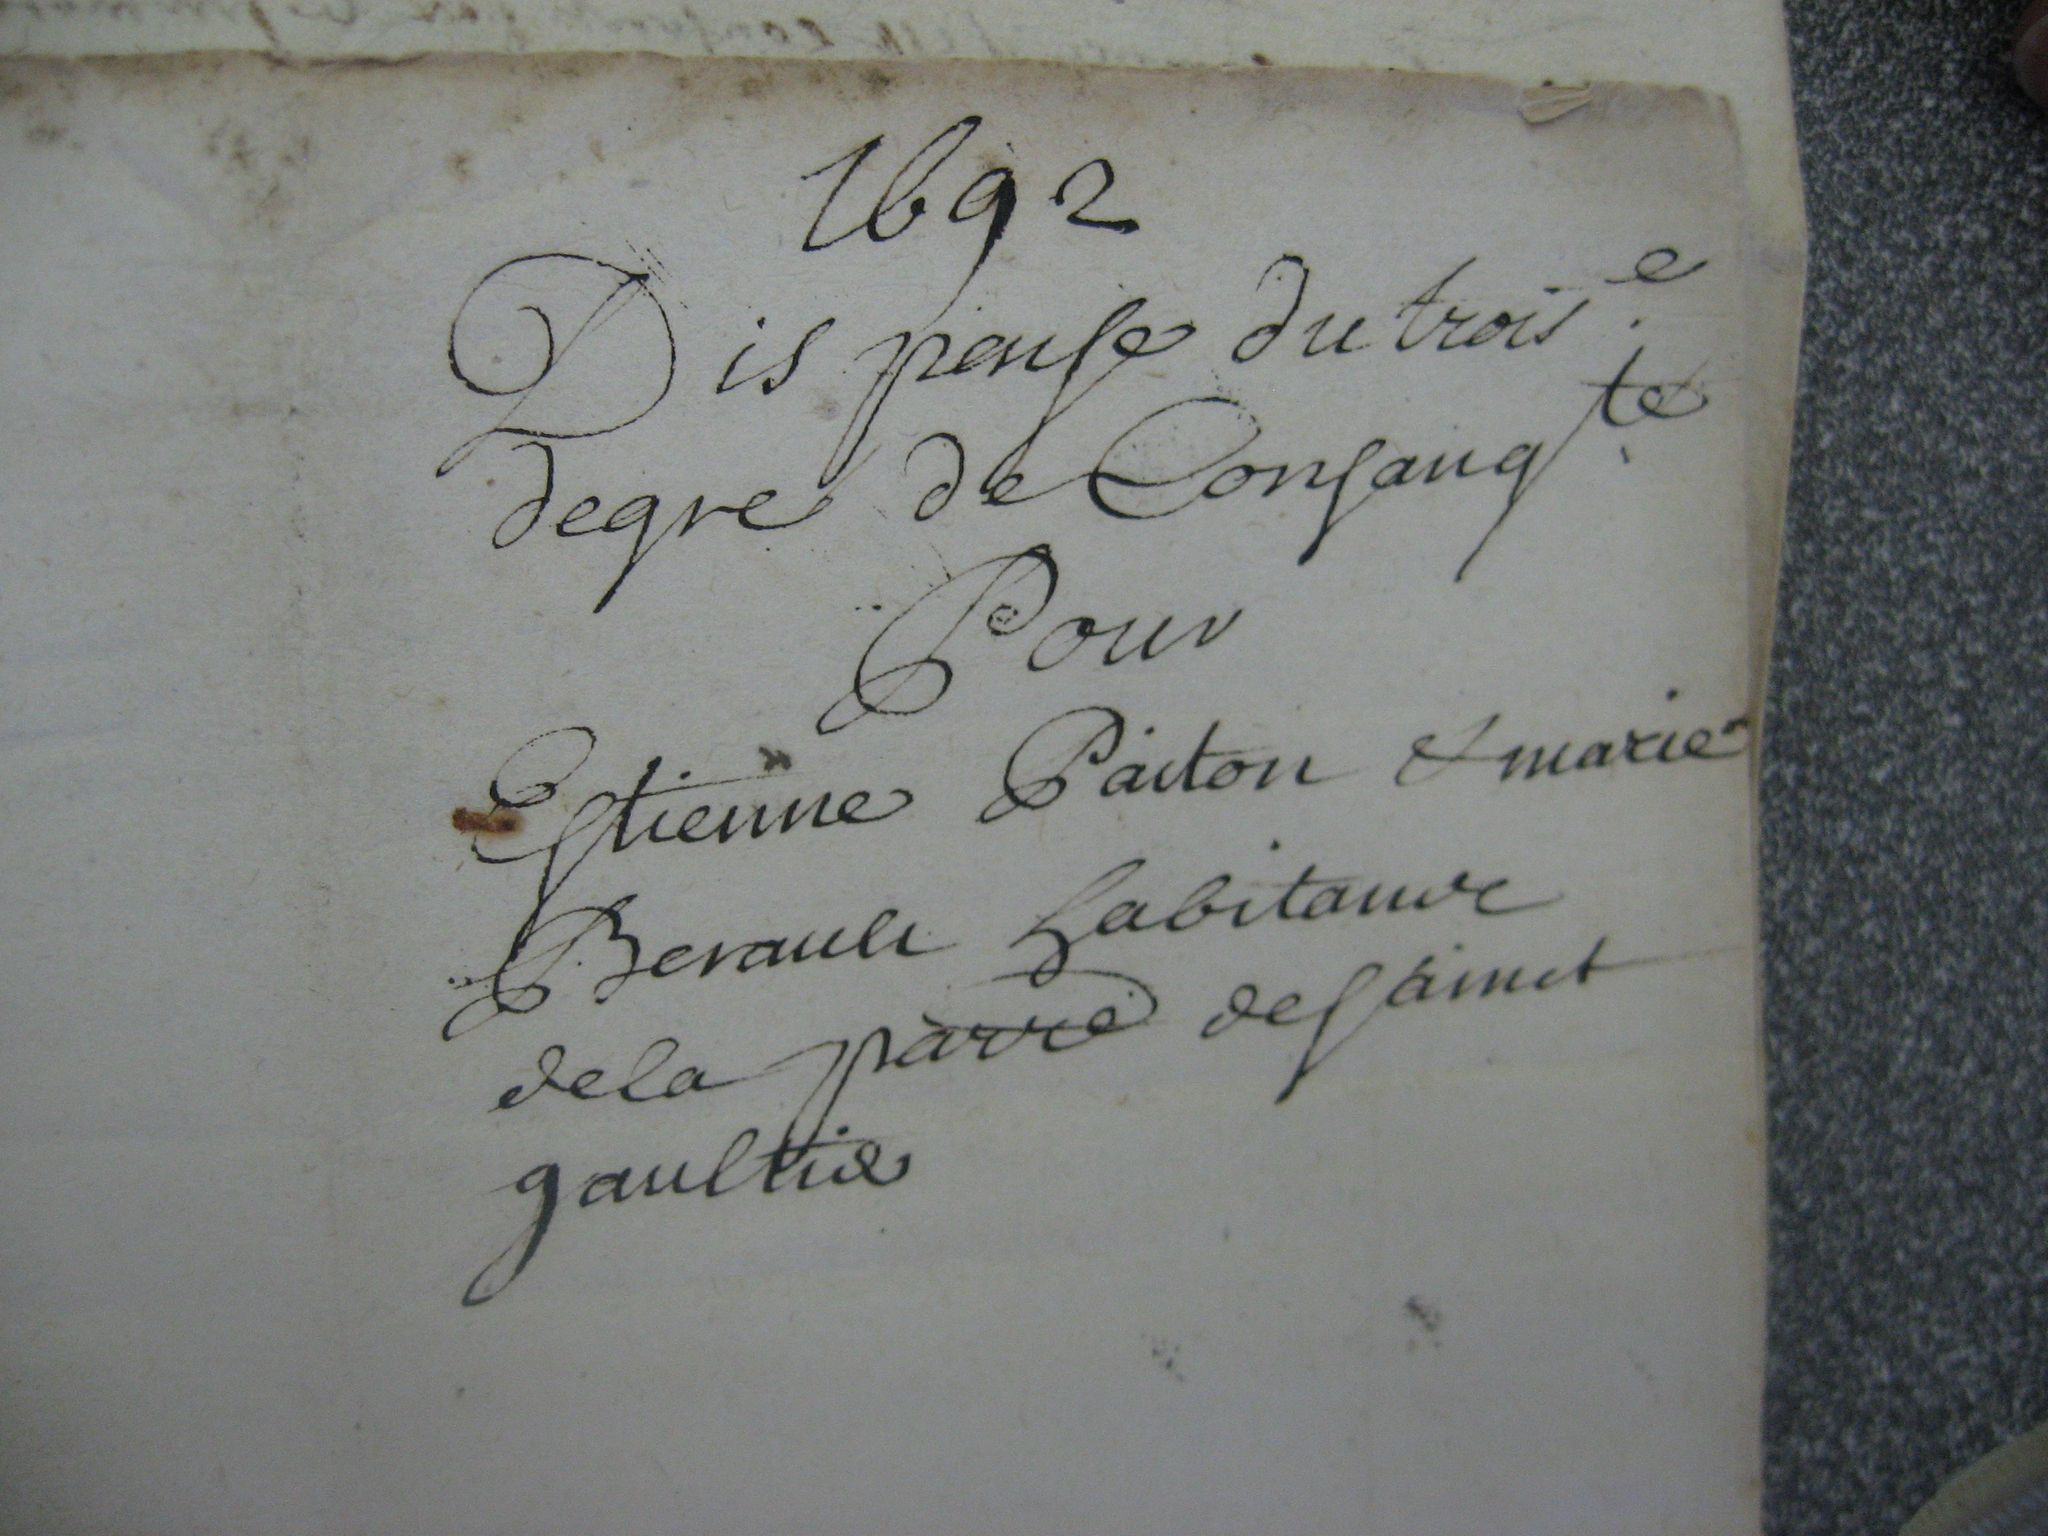 1692
Dispense du trois.e
degre de Consang.te
Pour
Estienne Paiton & marie
Berault habitans
de la parre de sainct
gaultie